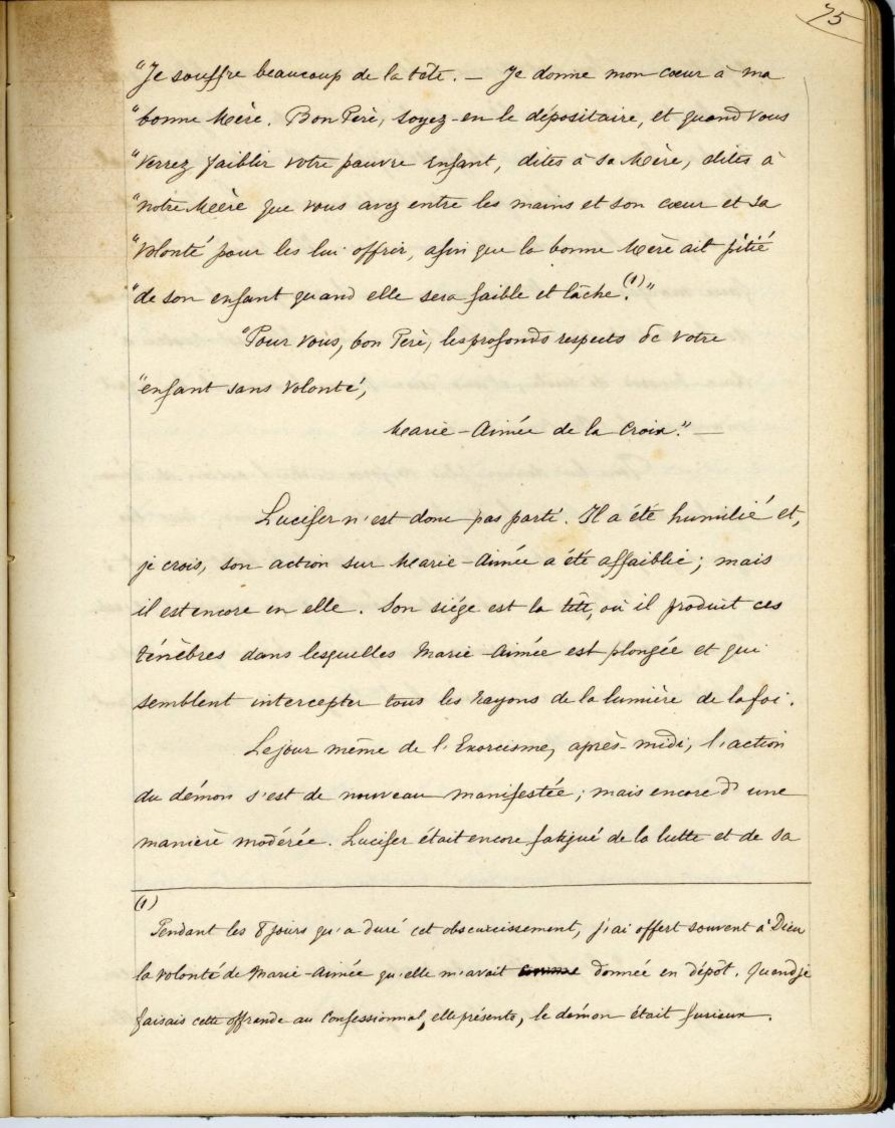 75
"Je souffre beaucoup de la tête. — Je donne mon cœur à ma
"bonne Mère. Bon Père, soyez-en le dépositaire, et quand vous
"verrez faiblir votre pauvre enfant, dites à sa Mère, dites à
"notre Mère que vous avez entre les mains et son cœur et sa
"volonté pour les lui offrir, afin que la bonne Mère ait pitié
"de son enfant quand elle sera faible et lâche (1)."
"Pour vous, bon Père, les profonds respects de votre
"enfant sans volonté,
Marie-Aimée de la Croix." —
Lucifer n'est donc pas parti. Il a été humilié et,
je crois, son action sur Marie-Aimée a été affaiblie ; mais
il est encore en elle. Son siége est la tête, où il produit ces
ténèbres dans lesquelles Marie-Aimée est plongée et qui
semblent intercepter tous les rayons de la lumière de la foi.
Le jour même de l'Exorcisme, après-midi, l'action
du démon s'est de nouveau manifestée ; mais encore d'une
manière modérée. Lucifer était encore fatigué de la lutte et de sa
(1)
Pendant les 8 jours qu'a duré cet obscurcissement, j'ai offert souvent à Dieu
la volonté de Marie-Aimée qu'elle m'avait comme donnée en dépôt. Quand je
faisais cette offrande au Confessionnal, elle présente, le démon était furieux.